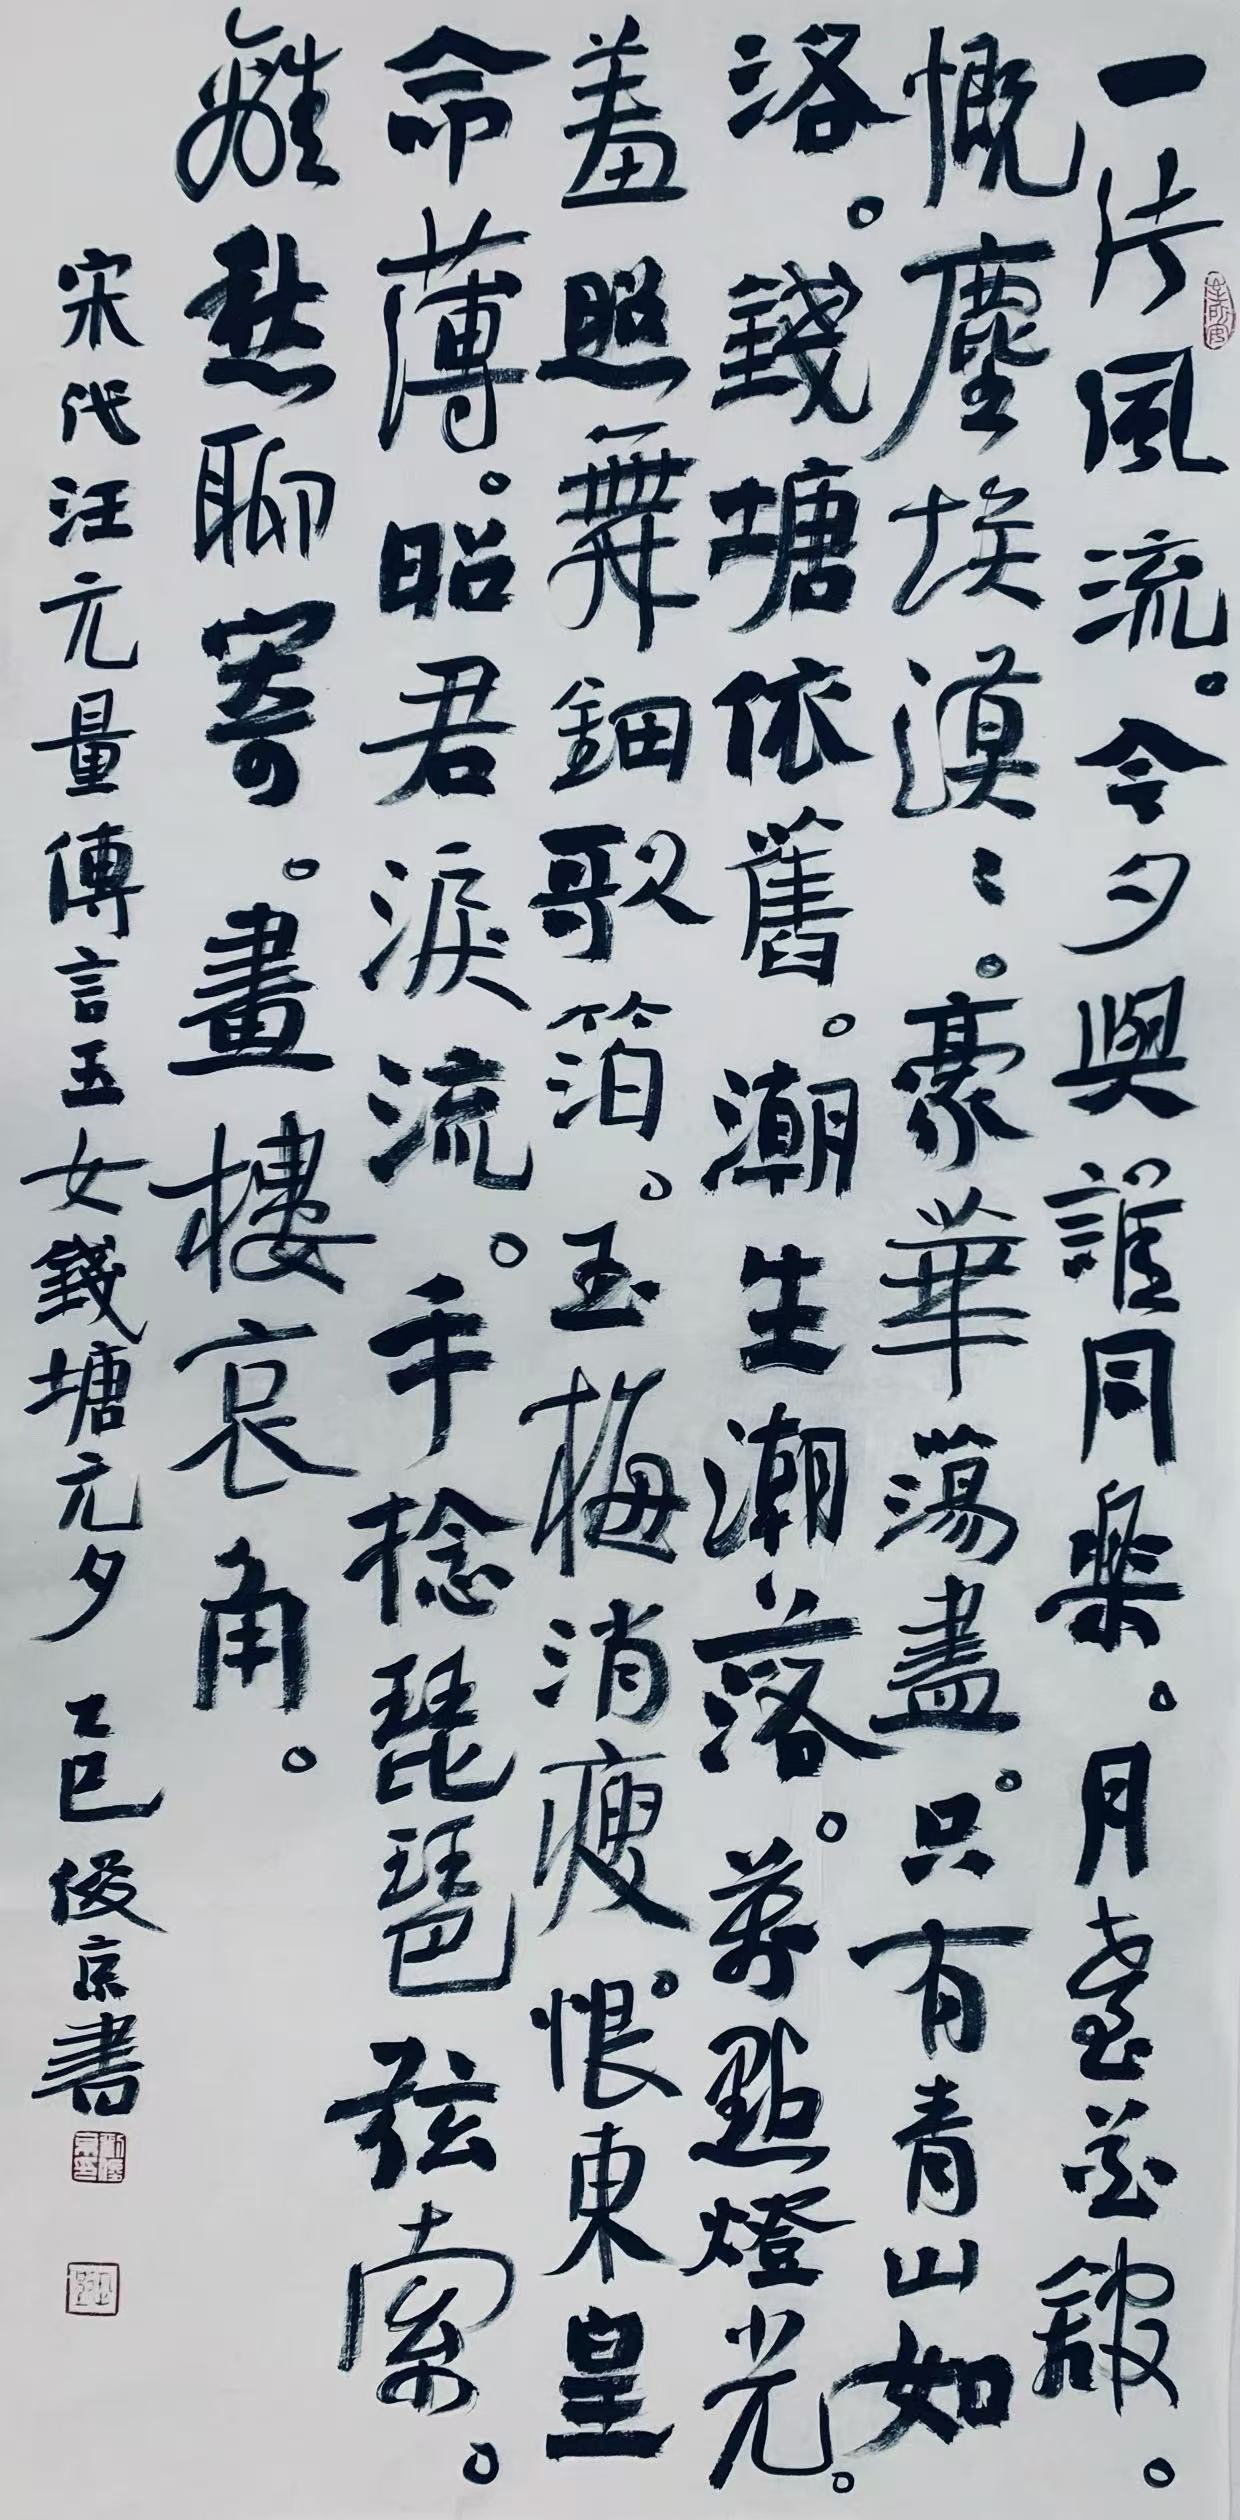 一片風流。今夕與誰同樂。月臺花館。
慨塵埃漠〻。豪華蕩盡。只有青山如
洛。錢塘依舊。潮生潮落。萬點燈光。
羞照舞鈿歌箔。玉梅消瘦。恨東皇
命薄。昭君淚流。手捻琵琶弦索。
離愁聊寄。畫樓哀角。
宋代汪元量傳言玉女錢塘元夕 乙巳 俊京書